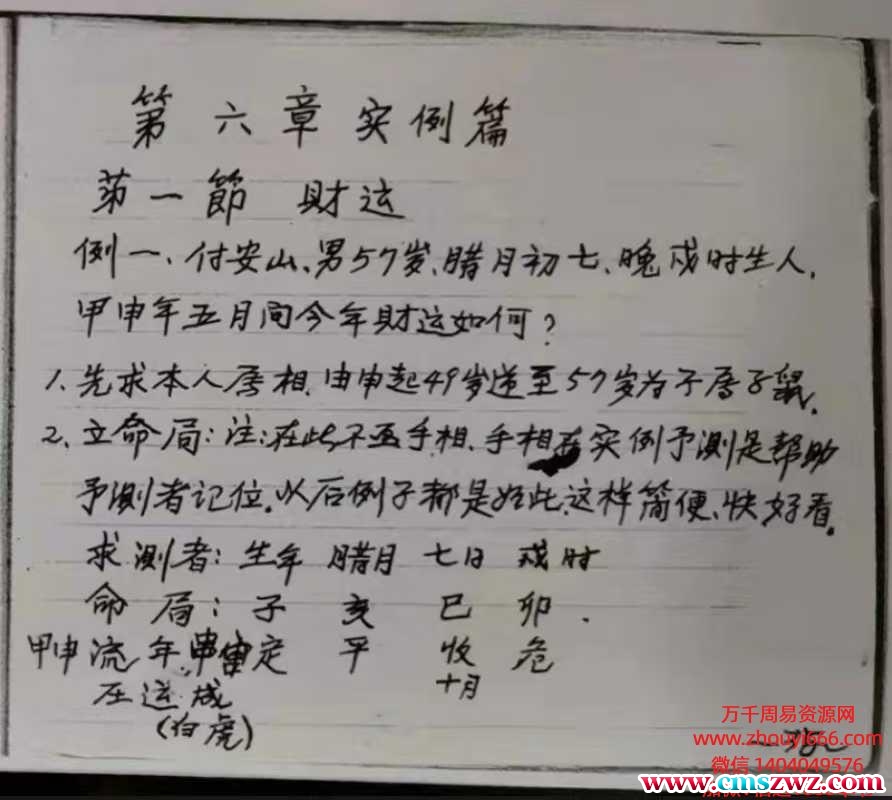 第六章实例篇
第一節 財运
例一、付安山、男57岁、腊月初七、晚戍时生人,
甲申年五月间今年財运如何?
1. 先求本人属相,由申起49岁逆至57岁为子属子鼠。
2. 立命局:注:在此不画手相、手相在实例予测是帮助
予测者记位。以后例子都是如此、这样简便、快好看。
求测者:生年 腊月 七日 戍时
命局:子 亥 巳 卯.
甲申流年、定 平 收 危
在运成 十月
(白虎)
万千周易资源网
www.zhouyi666.com
微信 1404049576
www.cmszwz.com